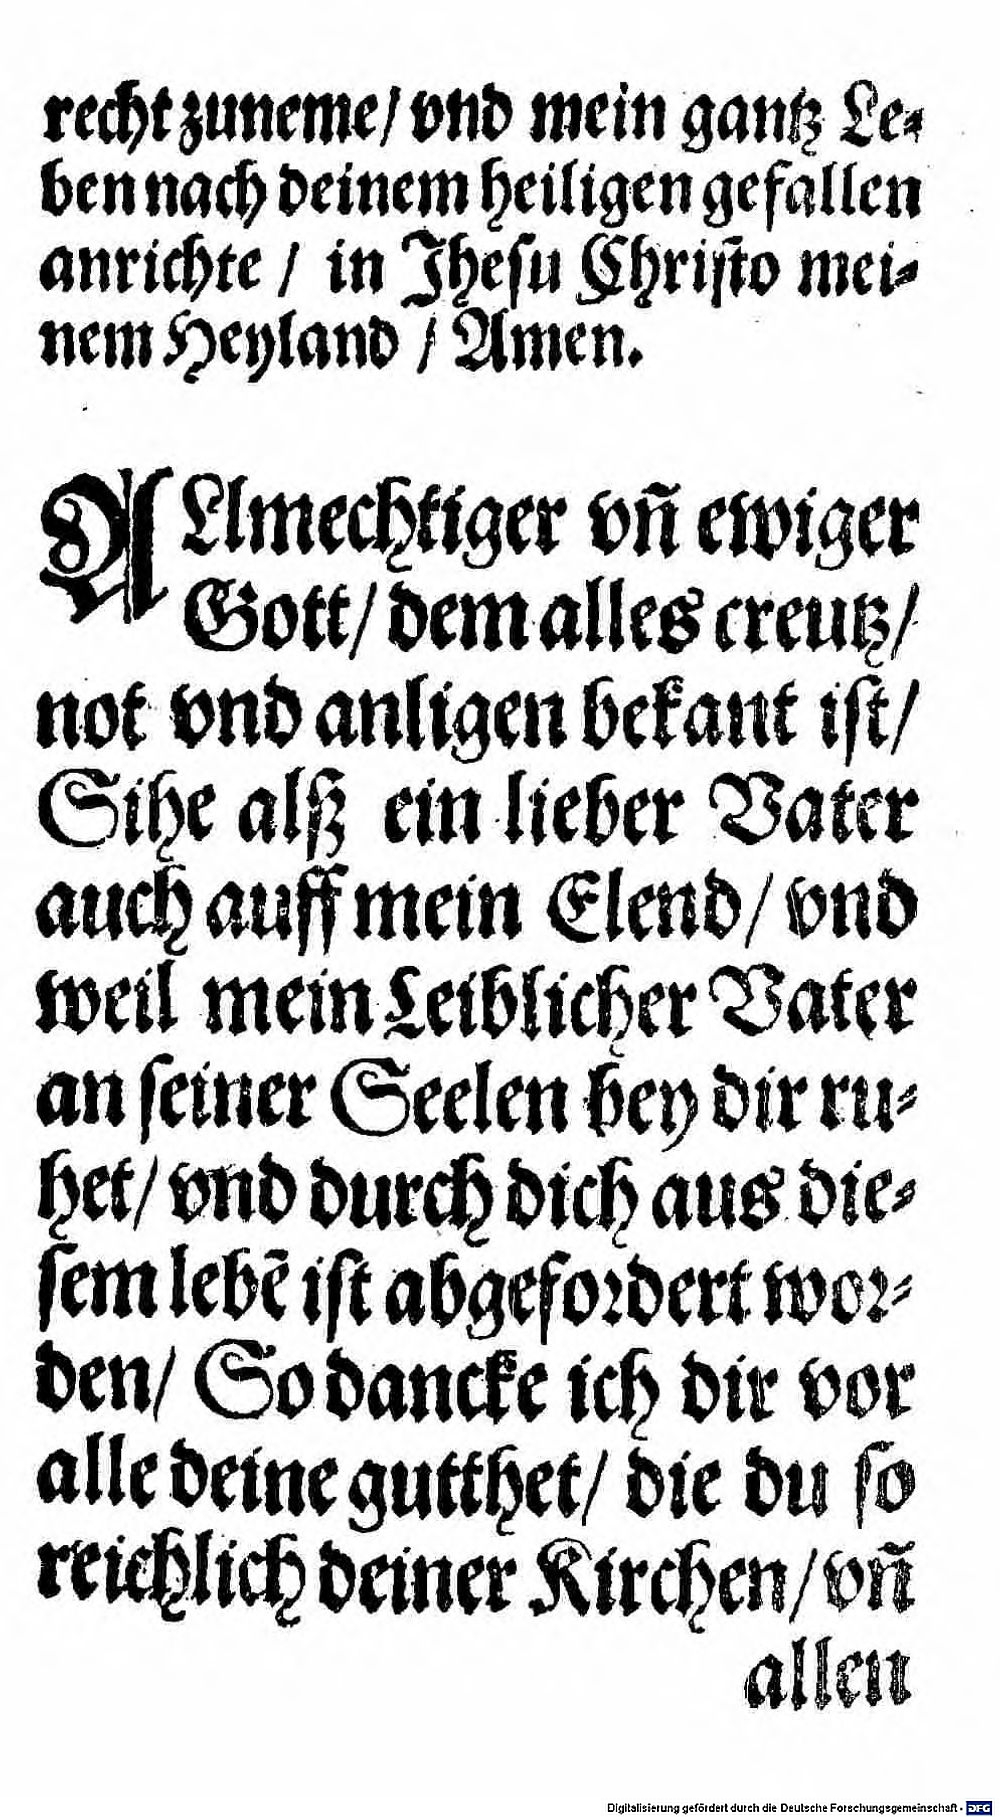 recht zuneme/ vnd mein gantz Le⸗
ben nach deinem heiligen gefallen
anrichte / in Jhesu Christo mei⸗
nem Heyland / Amen.
ALlmechtiger vñ ewiger
Gott/ dem alles creutz/
not vnd anligen bekant ist/
Sihe alß ein lieber Vater
auch auff mein Elend/ vnd
weil mein Leiblicher Vater
an seiner Seelen bey dir ru⸗
het/ vnd durch dich aus die⸗
sem lebẽ ist abgefordert wor⸗
den/ So dancke ich dir vor
alle deine gutthet/ die du so
reichlich deiner Kirchen/ vñ
allen
Digitalisierung gefördert durch die Deutsche Forschungsgemeinschaft - DFG